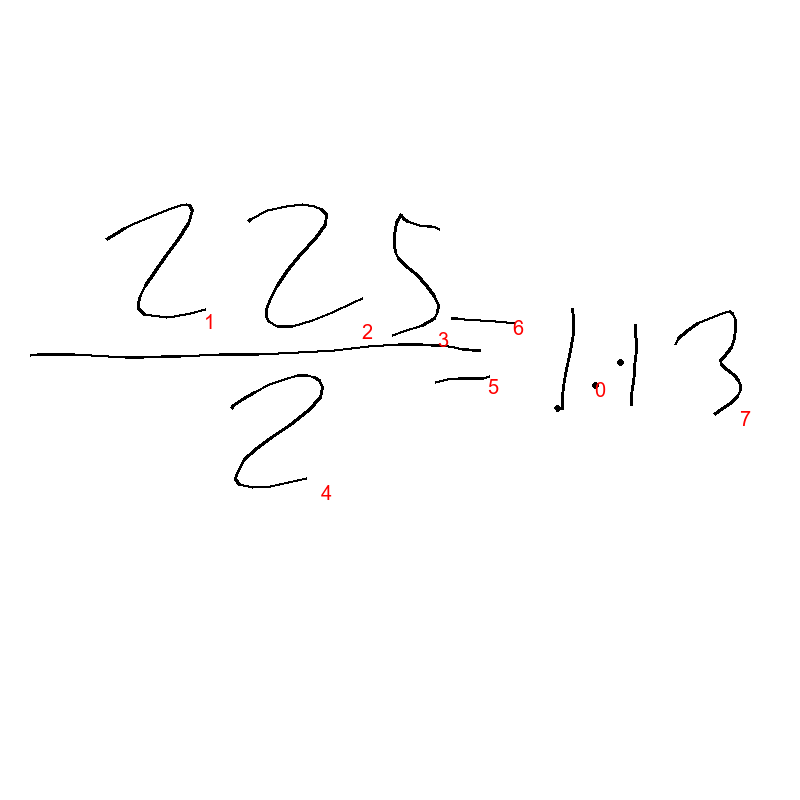 225
2
= 1.13
1
2
3
6
5
0
7
4